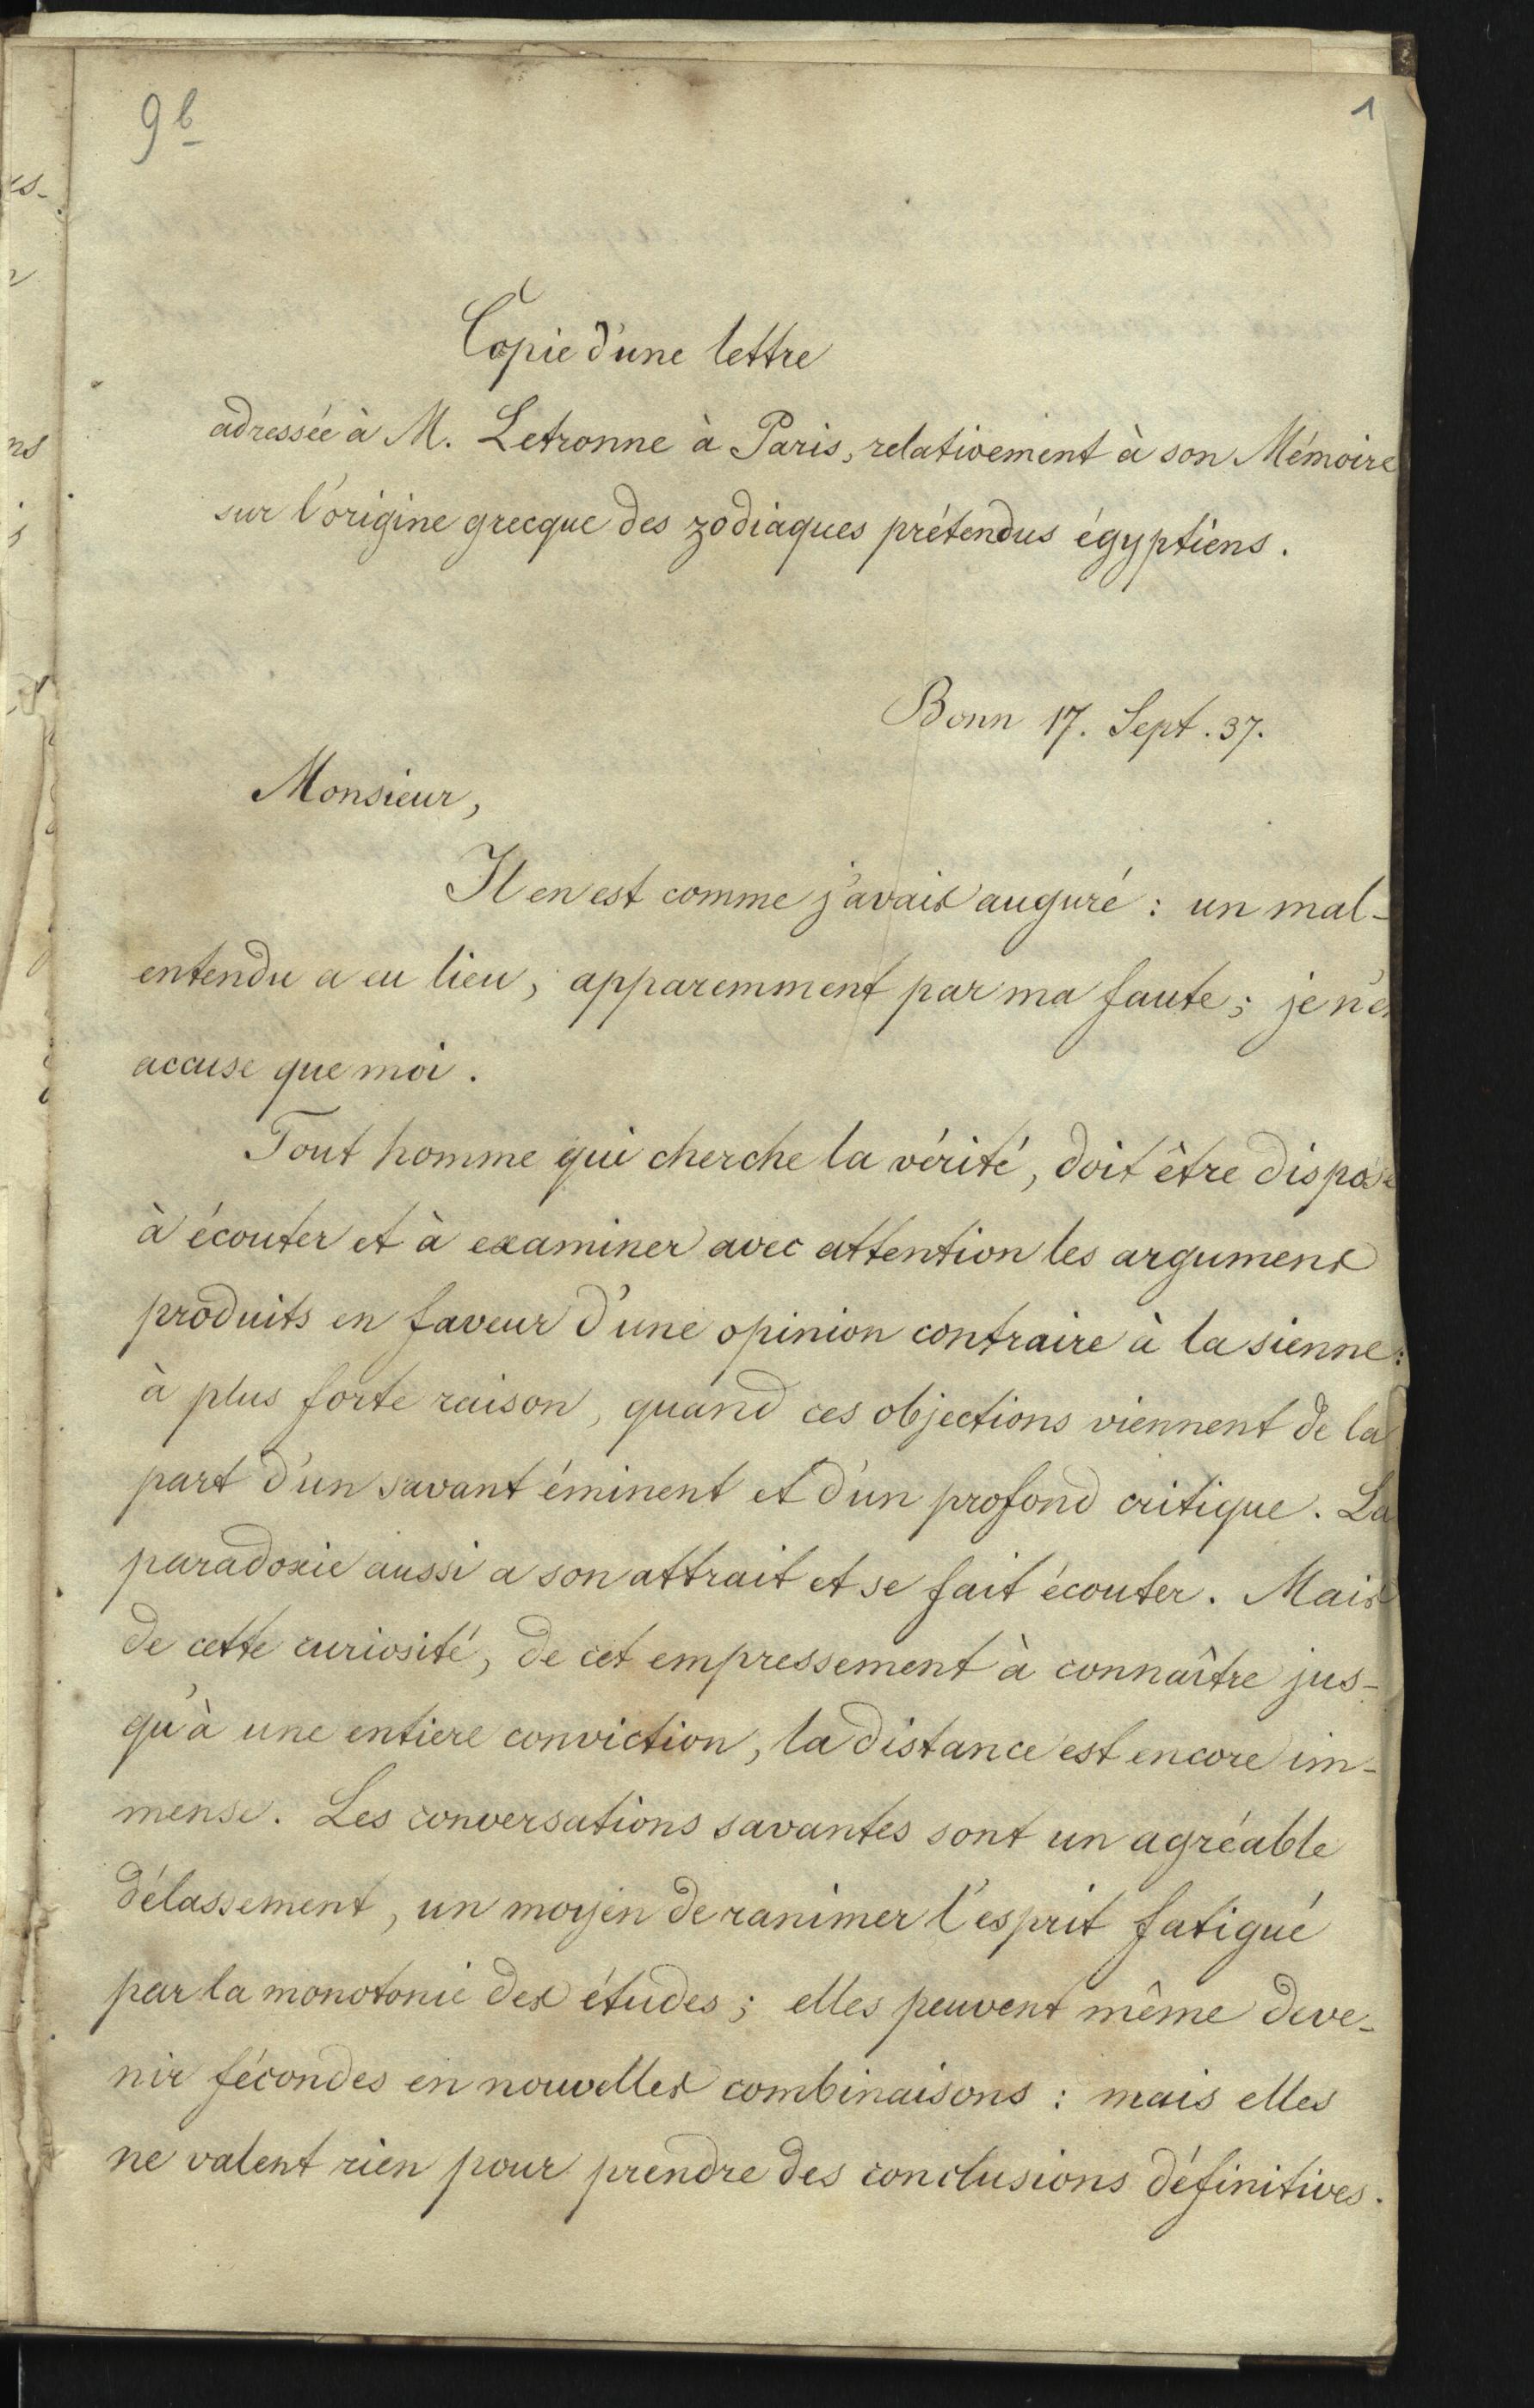 9b
1
Copie d'une lettre
adressée à M. Letronne à Paris, relativement à son Mémoire
sur l'origine grecque des zodiaques prétendus égyptiens.
Bonn 17. Sept. 37.
Monsieur,
Il en est comme j'avais auguré : un mal-
entendu a eu lieu, apparemment par ma faute; je n'en
accuse que moi.
Tout homme qui cherche la vérité, doit être disposé
à écouter et à examiner avec attention les argumens
produits en faveur d'une opinion contraire à la sienne:
à plus forte raison, quand ces objections viennent de la
part d'un savant éminent et d'un profond critique. La
paradoxie aussi a son attrait et se fait écouter. Mais
de cette curiosité, de cet empressement à connaître jus-
qu'à une entiere conviction, la distance est encore im-
mense. Les conversations savantes sont un agréable
délassement, un moyen de ranimer l'esprit fatigué
par la monotonie des études; elles peuvent même deve-
nir fécondes en nouvelles combinaisons : mais elles
ne valent rien pour prendre des conclusions définitives.